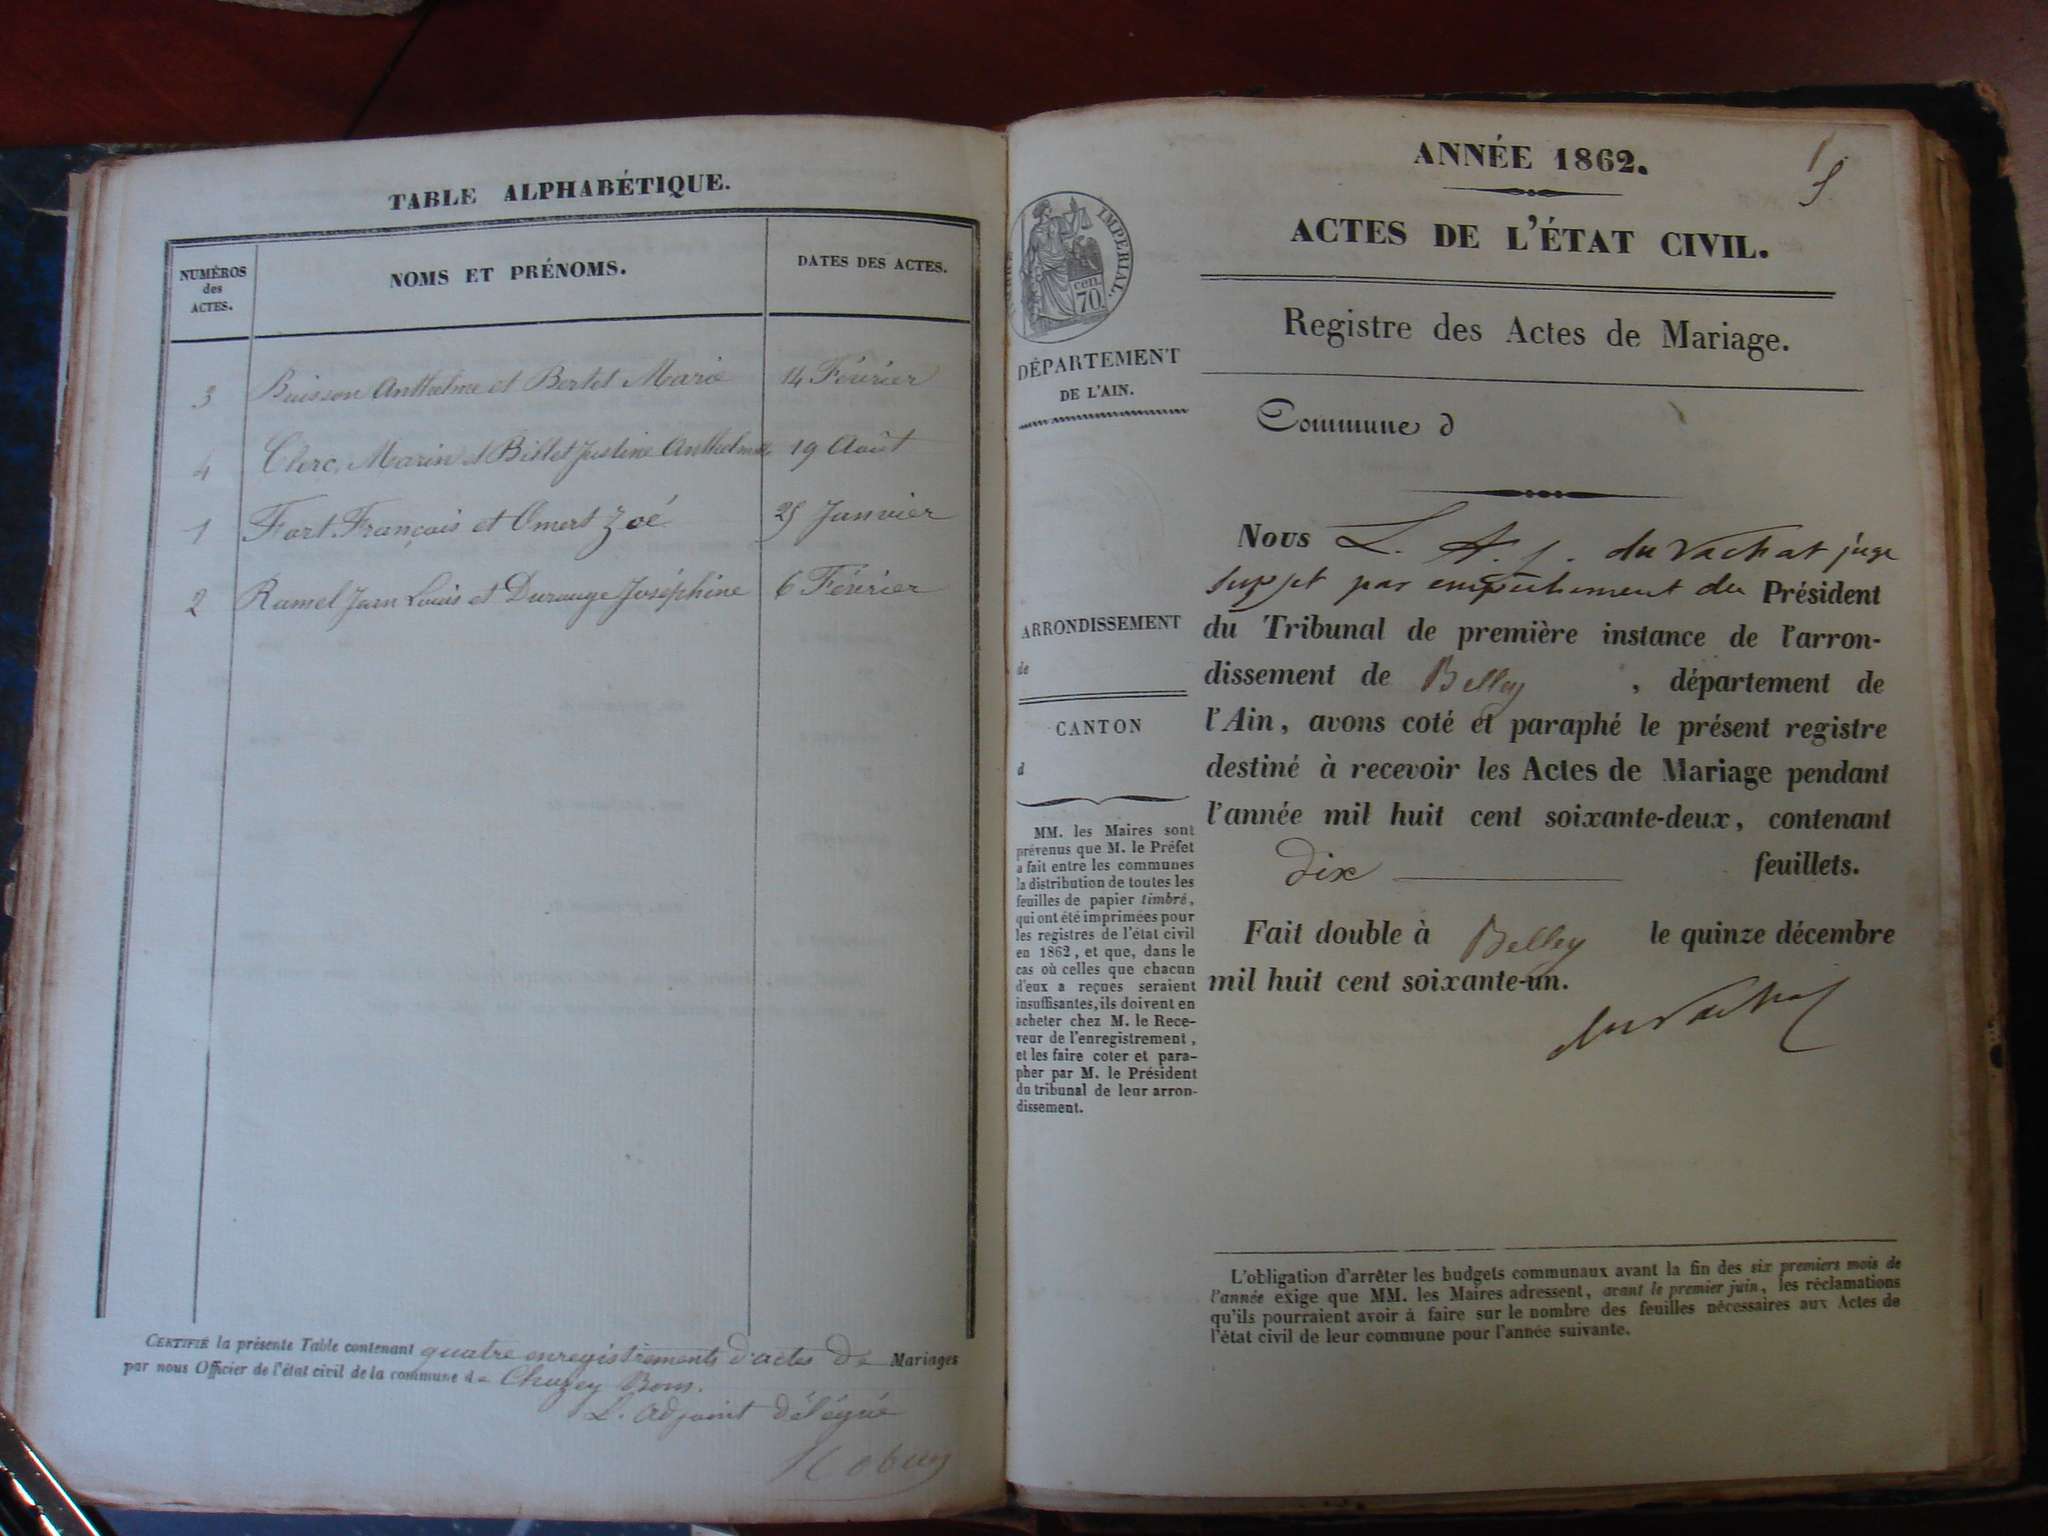 TABLE ALPHABÉTIQUE.
NUMÉROS
des
ACTES.
NOMS ET PRÉNOMS.
DATES DES ACTES.
3 Buisson Anthelme et Bertet Marie 14 Février
4 Clerc, Marin et Billet Justine Anthelmette 19 Août
1 Fort François et Omert Zoé 25 Janvier
2 Ramel Jean Louis et Durouge Joséphine 6 Février
CERTIFIÉ la présente Table contenant quatre enregistrements d'actes de Mariages
par nous Officier de l'état civil de la commune de Chazey Bons.
L'adjoint délégué
ANNÉE 1862.
1
ACTES DE L'ÉTAT CIVIL.
Registre des Actes de Mariage.
TIMBRE IMPERIAL.
cen.
70.
DÉPARTEMENT
DE L'AIN.
ARRONDISSEMENT
de
CANTON
d
MM. les Maires sont
prévenus que M. le Préfet
a fait entre les communes
la distribution de toutes les
feuilles de papier timbré,
qui ont été imprimées pour
les registres de l'état civil
en 1862, et que, dans le
cas où celles que chacun
d'eux a reçues seraient
insuffisantes, ils doivent en
acheter chez M. le Rece-
veur de l'enregistrement,
et les faire coter et para-
pher par M. le Président
du tribunal de leur arron-
dissement.
Commune d
Nous L. A. J. du Vachat juge
suppt par empêchement du Président
du Tribunal de première instance de l'arron-
dissement de Belley, département de
l'Ain, avons coté et paraphé le présent registre
destiné à recevoir les Actes de Mariage pendant
l'année mil huit cent soixante-deux, contenant
Dix feuillets.
Fait double à Belley le quinze décembre
mil huit cent soixante-un.
du Vachat
L'obligation d'arrêter les budgets communaux avant la fin des six premiers mois de
l'année exige que MM. les Maires adressent, avant le premier juin, les réclamations
qu'ils pourraient avoir à faire sur le nombre des feuilles nécessaires aux Actes de
l'état civil de leur commune pour l'année suivante.